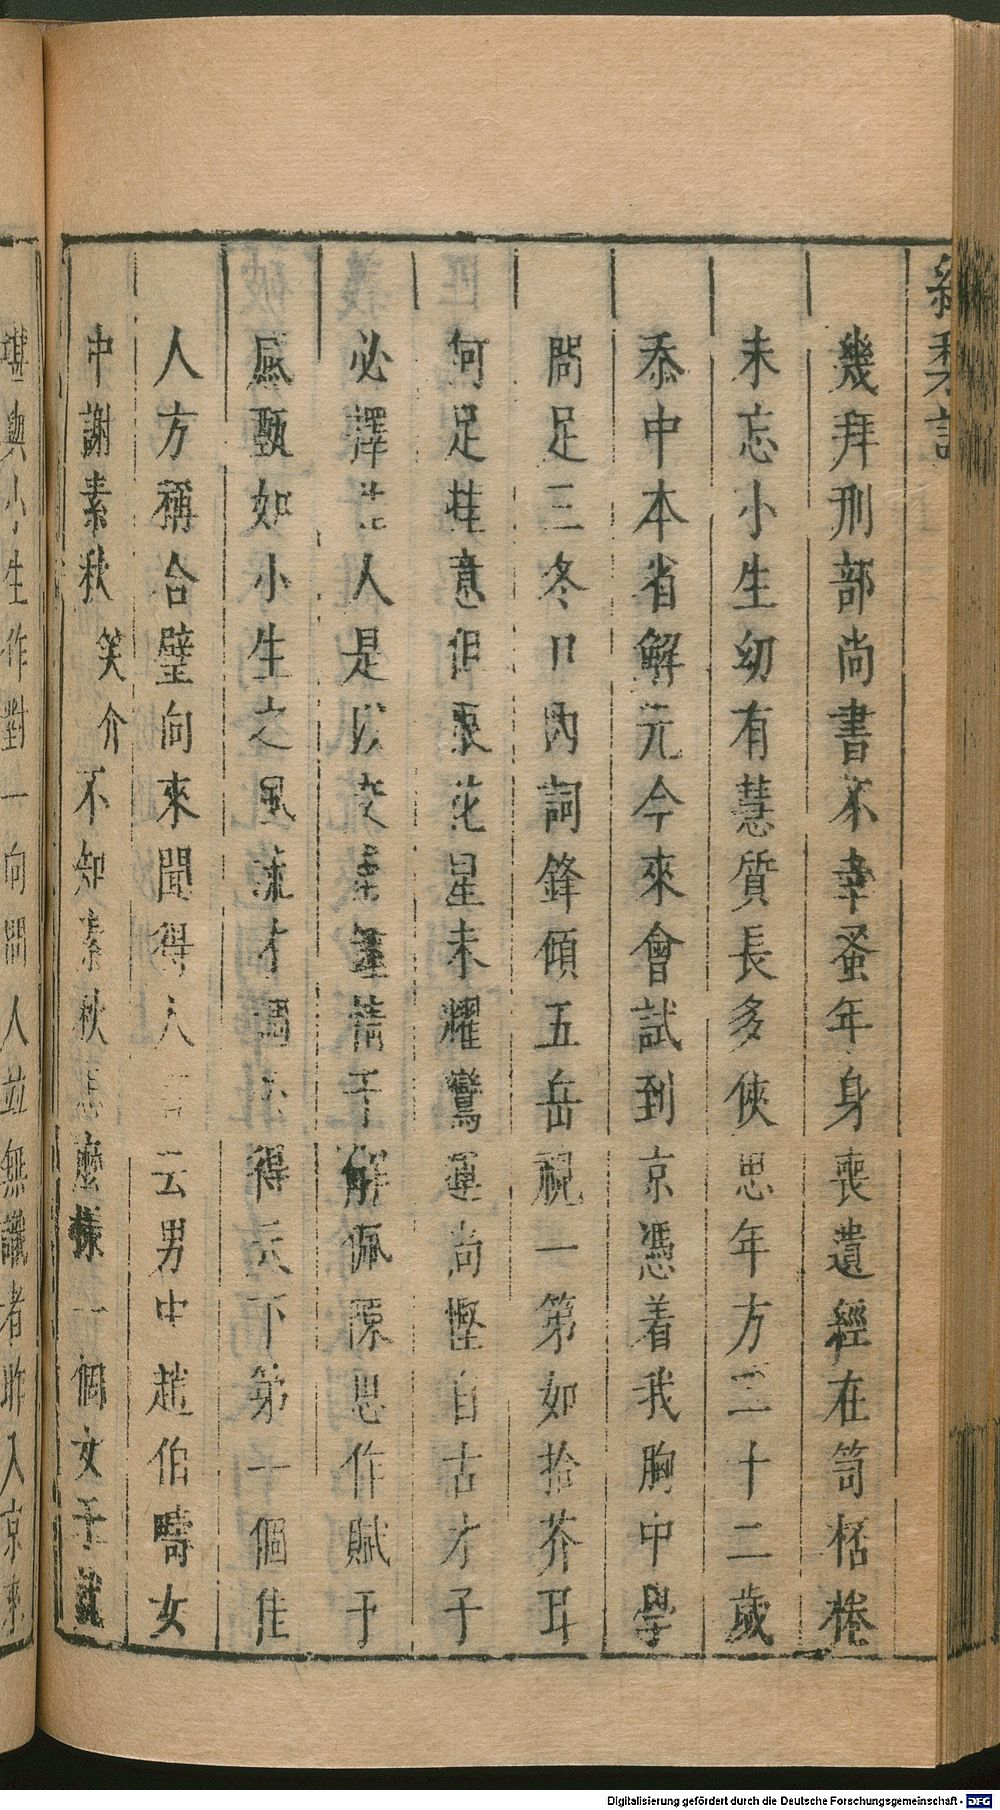 紅梨記
幾拜刑部尚書不幸蚤年身喪遺經在笥栝棬
未忘小生幼有慧質長多俠思年方二十二歲
忝中本省解元今來會試到京憑着我胸中學
問足三冬口內詞鋒傾五岳視一第如拾芥耳
何足挂意但裒花星未耀鸞運尚慳自古才子
必擇佳人是以交甫解佩陳思作賦于
風致如小生之風流才調必得天下第一個佳
人方稱合璧向來聞得人言云男中趙伯疇女
中謝素秋 笑介 不知素秋怎麼樣一個女子就
堪與小生作對一向問人並無識者昨入京來
Digitalisierung gefördert durch die Deutsche Forschungsgemeinschaft - DFG